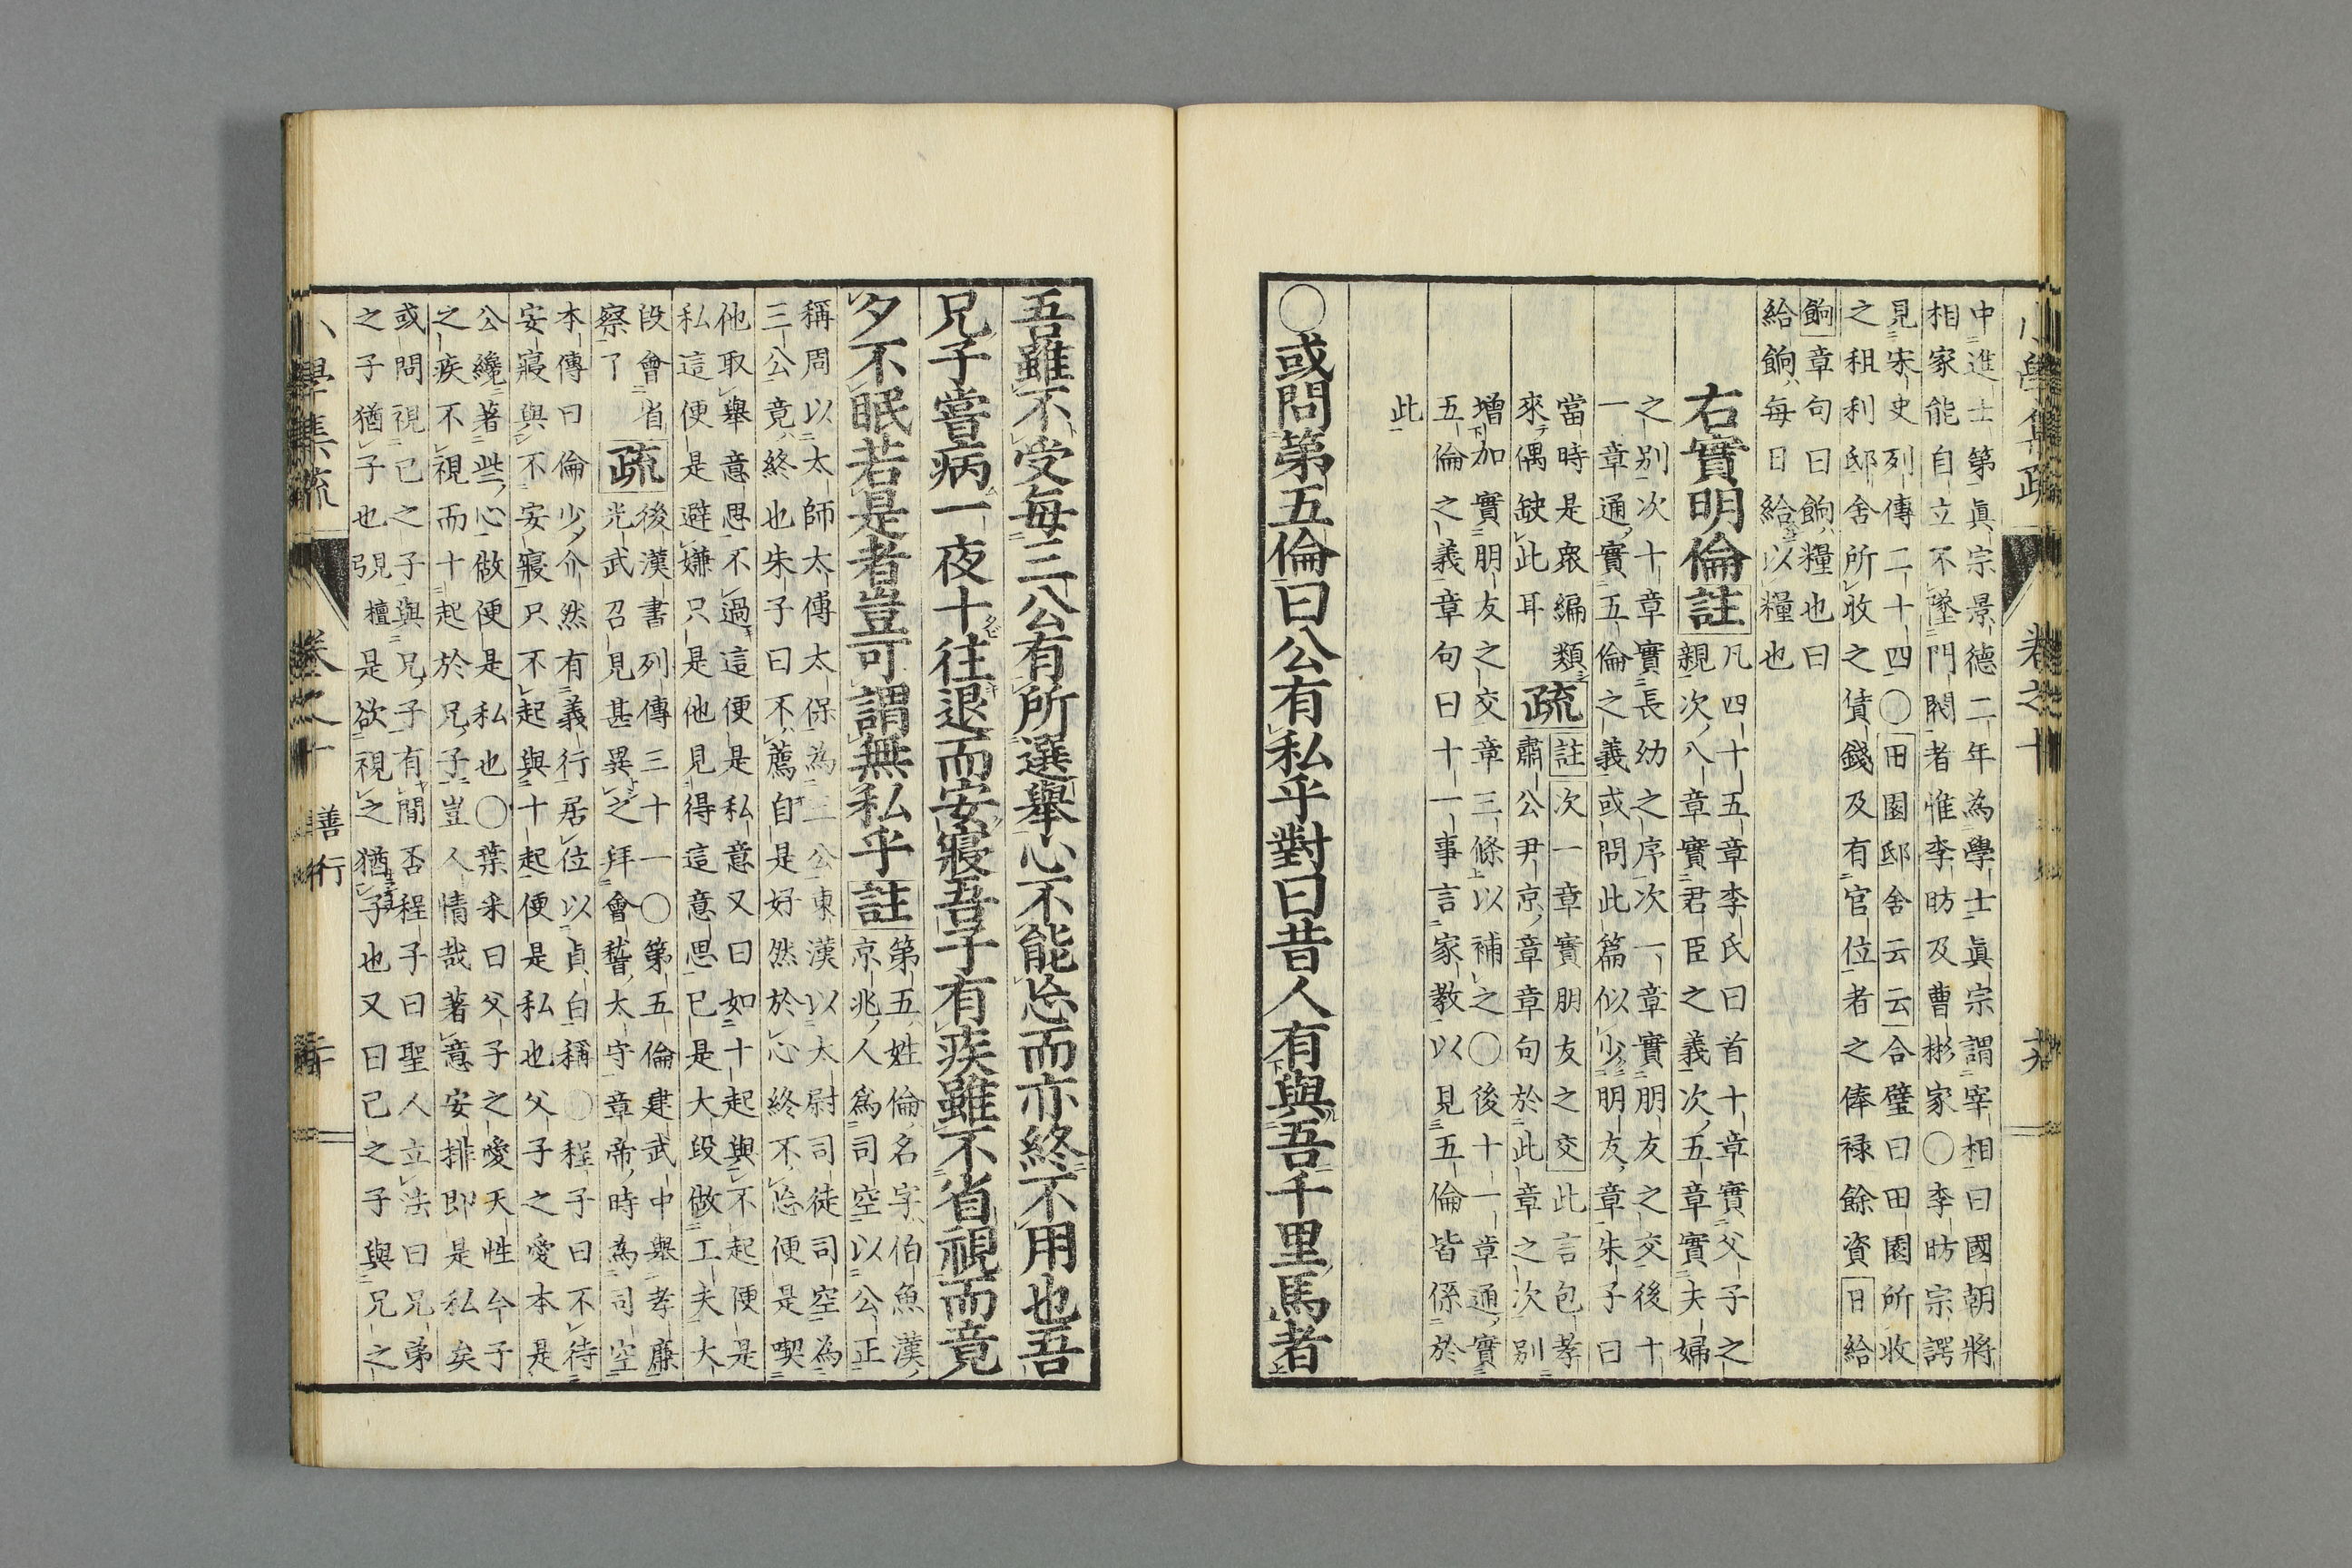 小學集疏 卷之十
中進士第眞宗景德二年為學士眞宗謂宰相曰國朝將
相家能自立不墜門閥者惟李昉及曹彬家〇李昉宗諤
見宋史列傳二十四〇田園邸舍云云合璧曰田園所收
之租利邸舍所收之賃錢及有官位者之俸禄餘資日給
餉章句曰餉糧也曰
給餉每日給以糧也
右實明倫註
凡四十五章李氏曰首十章實父子之
親次八章實君臣之義次五章實夫婦
之別次十章實長幼之序次一章實朋友之交後十
一章通實五倫之義或問此篇似少明友章朱子曰
當時是衆編類
來偶缺此耳
疏
註次一章實朋友之交此言包孝
肅公尹京章章句於此章之次別
增加實朋友之交章三條以補之〇後十一章通實
五倫之義章句曰十一事言家教以見五倫皆係於
此
〇或問第五倫曰公有私乎對曰昔人有與吾千里馬者
吾雖不受每三公有所選舉心不能忘而亦終不用也吾
兄子嘗病一夜十往退而安寢吾子有疾雖不省視而竟
夕不眠若是者豈可謂無私乎註
第五姓倫名字伯魚漢
京兆人為司空以公正
稱周以太師太傅太保為三公東漢以太尉司徒司空為
三公竟終也朱子曰不薦自是好然於心終不忘便是喫
他取舉意思不過這便是私意又曰如十起與不起便是
私這便是避嫌只是他見得這意思已是大段做工夫大
段會省
察了
疏
後漢書列傳三十一〇第五倫建武中舉孝廉
光武召見甚異之拜會稽太守章帝時為司空
本傳曰倫少介然有義行居位以貞白稱〇程子曰不待
安寢與不安寢只不起與十起便是私也父子之愛本是
公纔著些心做便是私也〇葉采曰父子之愛天性今子
之疾不視而十起於兄子豈人情哉著意安排即是私矣
或問視己之子與兄子有間否程子曰聖人立法曰兄弟
之子猶子也覭檀是欲視之猶子也又曰己之子與兄之
小學集疏 卷之十 善行